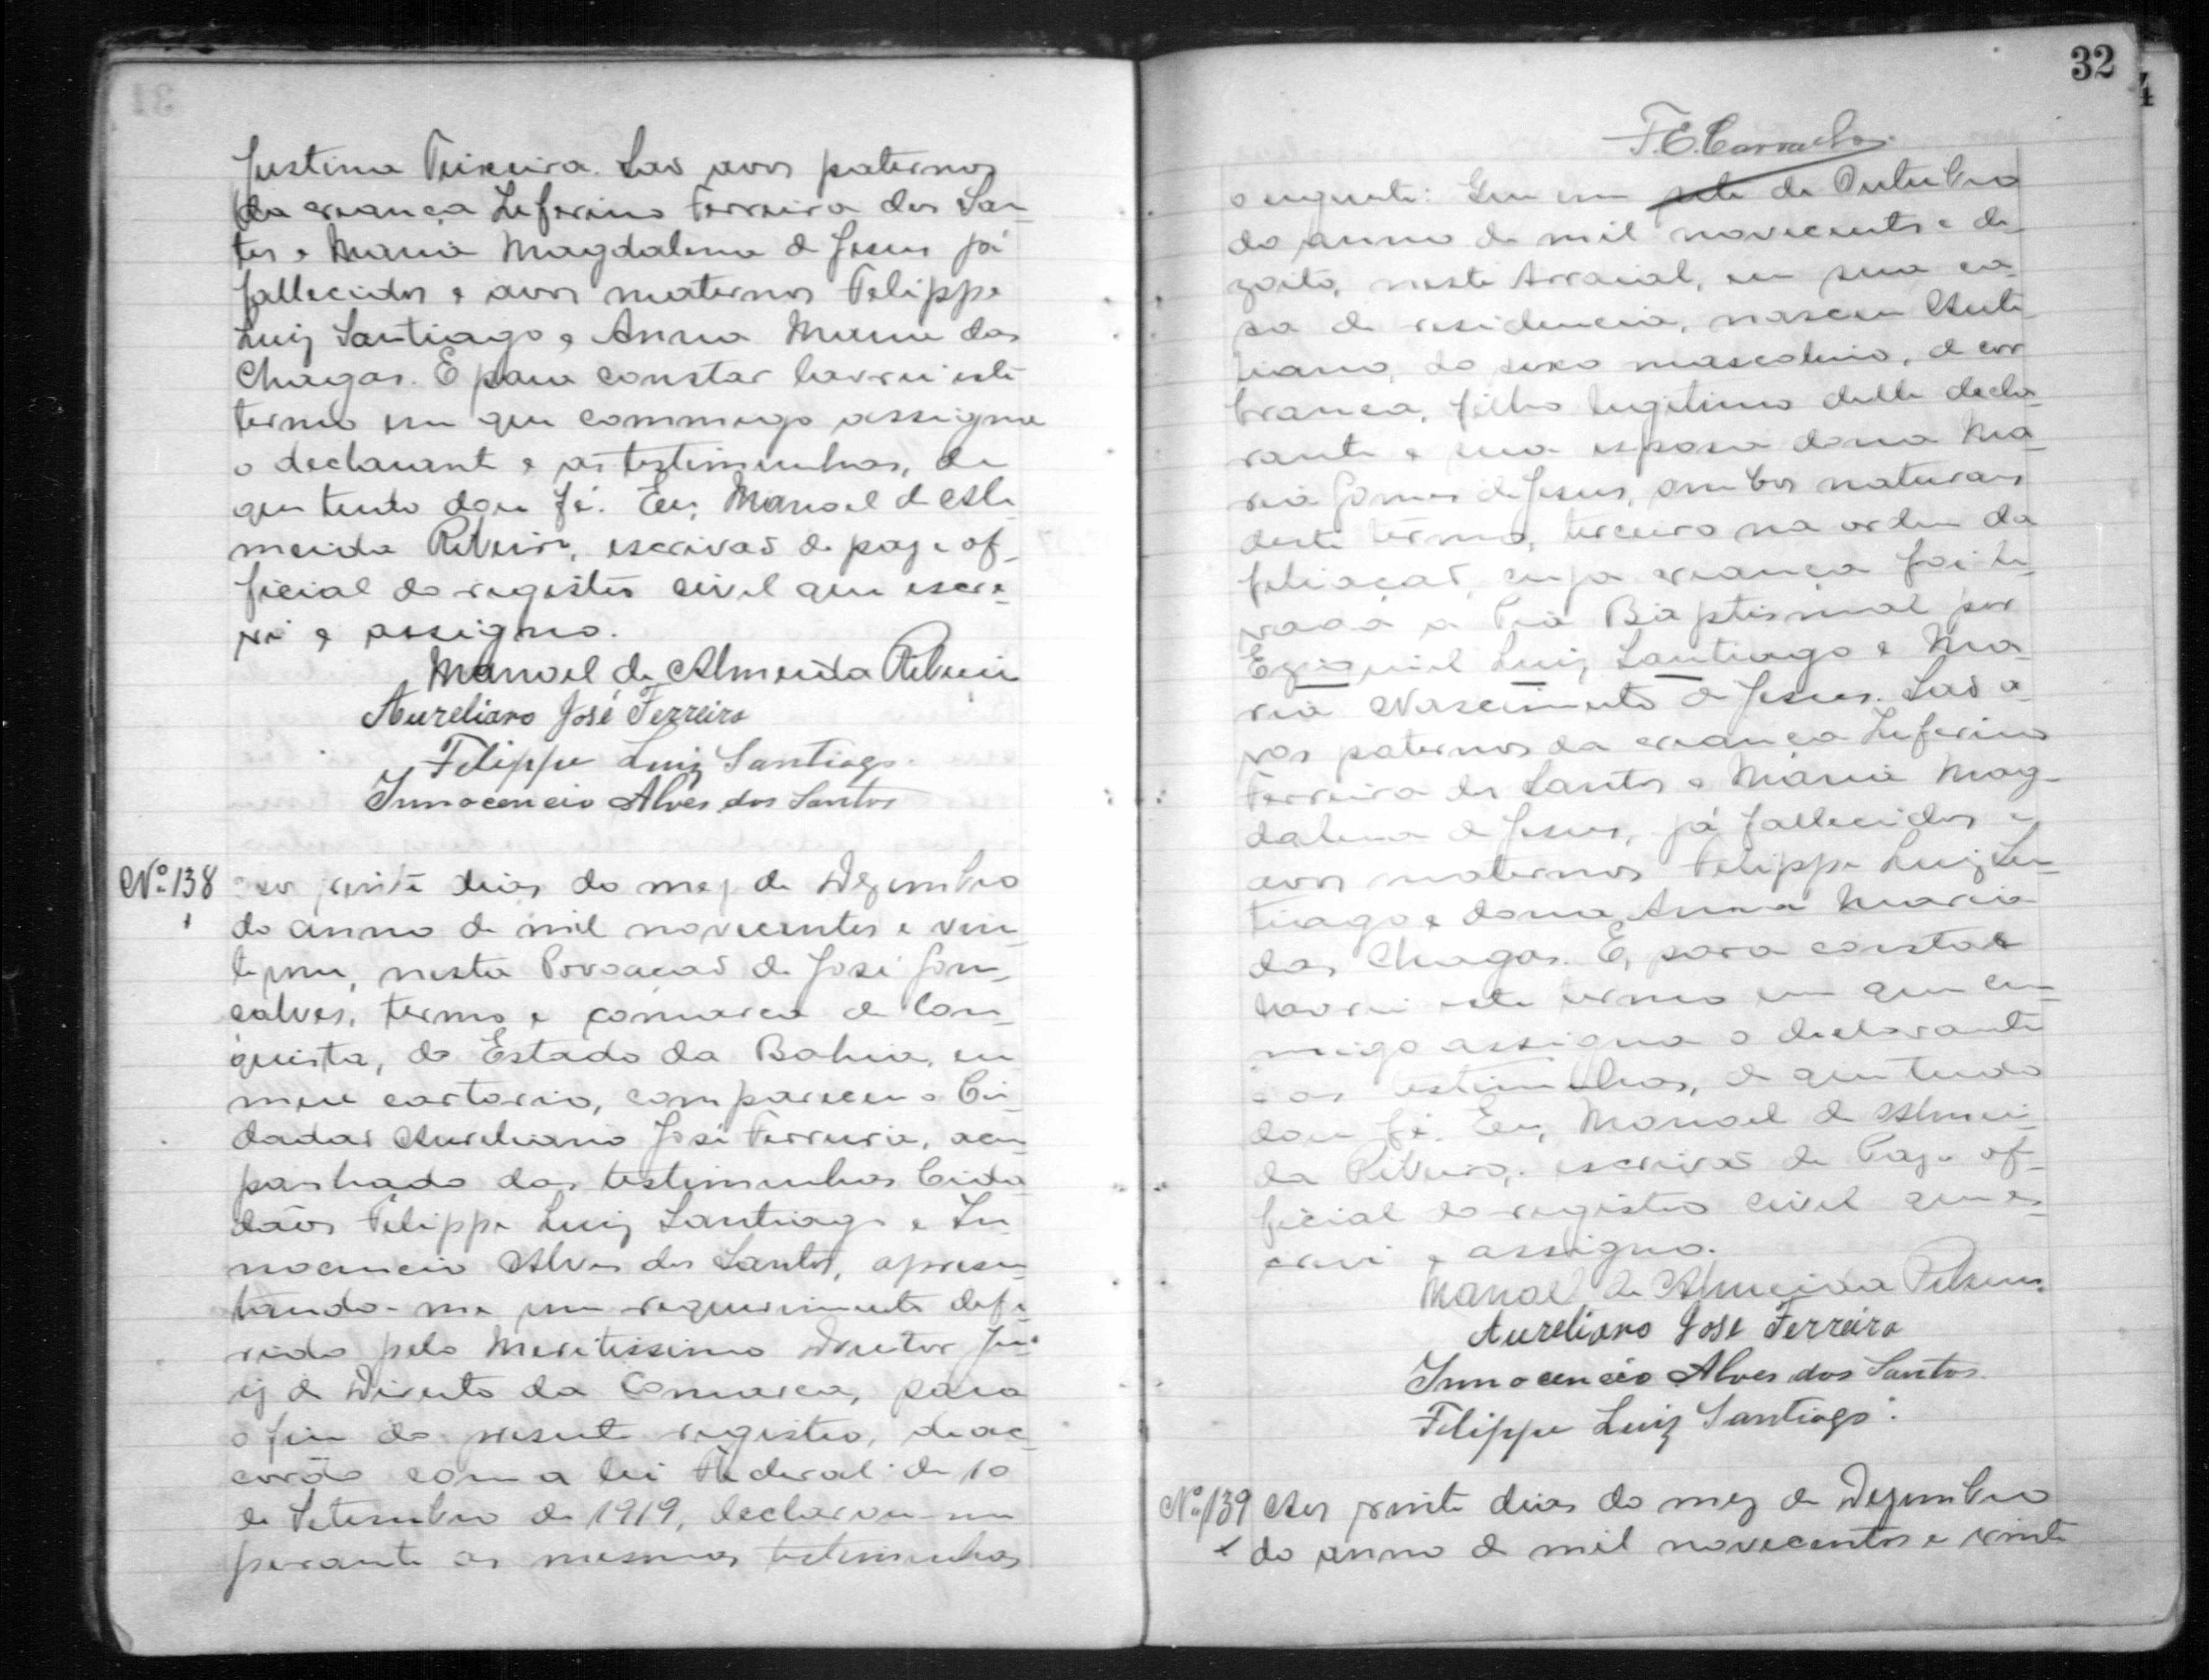 Justina Teixeira. Saõ avos paternos
da creança Zeferino Ferreira dos San-
tos e Maria Magdalena de Jesus já
fallecidos e avos maternos Felippe
Luiz Santiago e Anna Maria das
Chagas. E para constar lavrei este
termo em que commigo assigna
o declarante e as testimunhas, de
que tudo dou fé. Eu, Manoel de Al-
meida Ribeiro, escrivaõ de paz e of-
ficial do registro civil que escre-
vi e assigno.
Manoel de Almeida Ribeiro
Aureliano José Ferreira
Felippe Luiz Santiago.
Innocencio Alves dos Santos
Nº 138 Aos vinte dias do mez de Dezembro
do anno de mil novecentos e vin-
te um, nesta Povoaçaõ de José Gon-
çalves, termo e comarca de Con-
quista, do Estado da Bahia, em
meu cartorio, compareceu o Ci-
dadaõ Aureliano José Ferreira, acom-
panhado das testimunhas Cida-
dãos Felippe Luiz Santiago e In-
nocencio Alves dos Santos, apresen-
tando-me um requerimento defe-
rido pelo Meritissimo Doutor Ju-
iz de Direito da Comarca, para
o fim do presente registro, de ac-
cordo com a lei Federal de 10
de Setembro de 1919, declarou-me
perante as mesmas testimunhas
32
F. E. Carvalho
o seguinte: Que em sete de Outubro
do anno de mil novecentos e de-
zoito, neste Arraial, em sua ca-
sa de residencia, nasceu
do sexo masculino, de cor
branca, filho legitimo delle decla-
rante e sua esposa dona Ma-
ria Gomes de Jesus, ambos naturaes
deste termo, terceiro na ordem da
filiaçaõ, cuja creança foi le-
vada a Pia Baptismal por
Ezequiel Luiz Santiago e Ma-
ria Nascimento de Jesus. Saõ a-
vos paternos da creança Zeferino
Ferreira dos Santos e Maria Mag-
dalena de Jesus, já fallecidos e
avos maternos Felippe Luiz San-
tiago e dona Anna Maria
das Chagas. E, para constar
lavrei este termo em que com-
migo assigna o declarante
e as testimunhas, de que tudo
dou fé. Eu, Manoel de Almei-
da Ribeiro, escrivaõ de Paz e of-
ficial do registro civil que es-
crevi e assigno.
Manoel de Almeida Ribeiro.
Aureliano José Ferreira
Innocencio Alves dos Santos.
Felippe Luiz Santiago.
Nº 139 Aos vinte dias do mez de Dezembro
do anno de mil novecentos e vinte